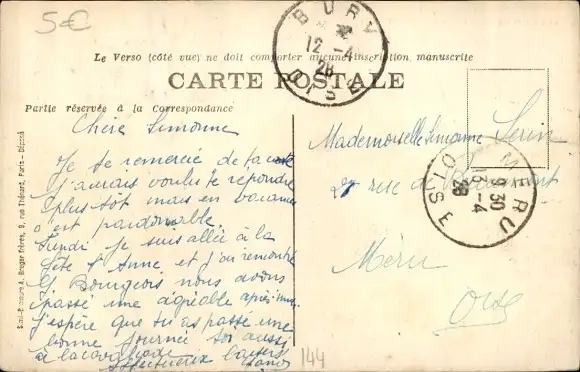 5€
BURY
12 -4
28
OISE
Le Verso (côté vue) ne doit comporter aucune inscription manuscrite
CARTE POSTALE
Partie réservée à la Correspondance
Chère Simonne
Je te remercie de ta carte
j'aurais voulu te répondre
plus tôt mais en vacances
c'est pardonnable.
Lundi je suis allée à la
fête d'Anne et j'ai rencontré
G. Bourgeois nous avons
passé une agréable après-midi
j'espère que tu as passé une
bonne journée toi aussi
à la cavalcade
affectueux baisers
Mademoiselle Simonne
27 rue de
Méru
Oise
MÉRU
9 30
13 -4
28
OISE
Breger frères, 9, rue Thénard, Paris - Déposé
144